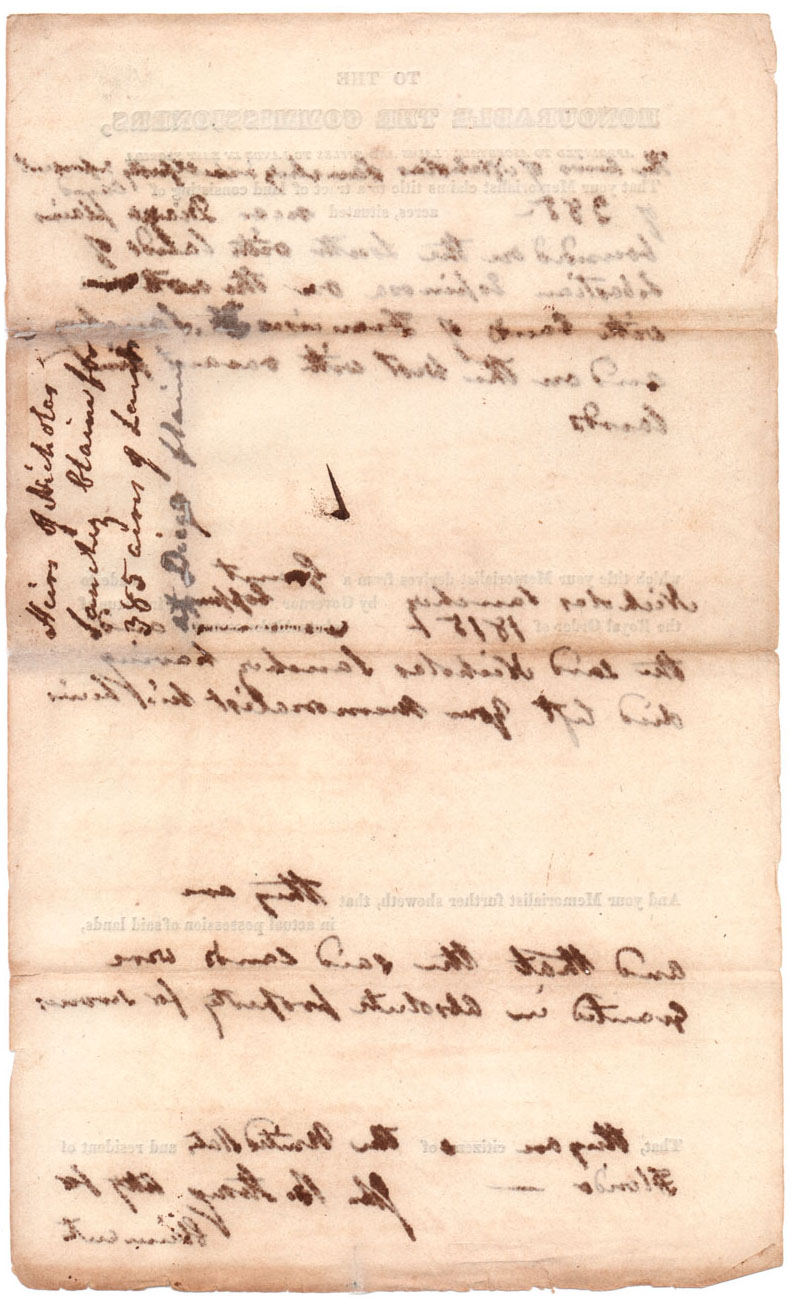 Heirs of Nicholas
Sanchez Claim for
385 acres of Land
at Diego Plains
TO THE
HONOURABLE THE COMMISSIONERS,
The heirs of Nicholas Sanchez
That your Memorialist claims title to a tract of land consisting of
385 acres, situated near Diego Plains
bounded on the South with lands of
Sebastian Espinosa on the North
with lands of Francisco Sanchez
and on the West with vacant
lands
which title your Memorialist derives from a Grant made to
Nicholas Sanchez by Governor Coppinger
the Royal Order of 1815
the said Nicholas Sanchez having
died left your memorialist his heirs
And your Memorialist further sheweth, that they are
in actual possession of said lands,
and that the said lands were
granted in absolute property for
That, they are citizens of the United States and resident of
Florida —
Claimants